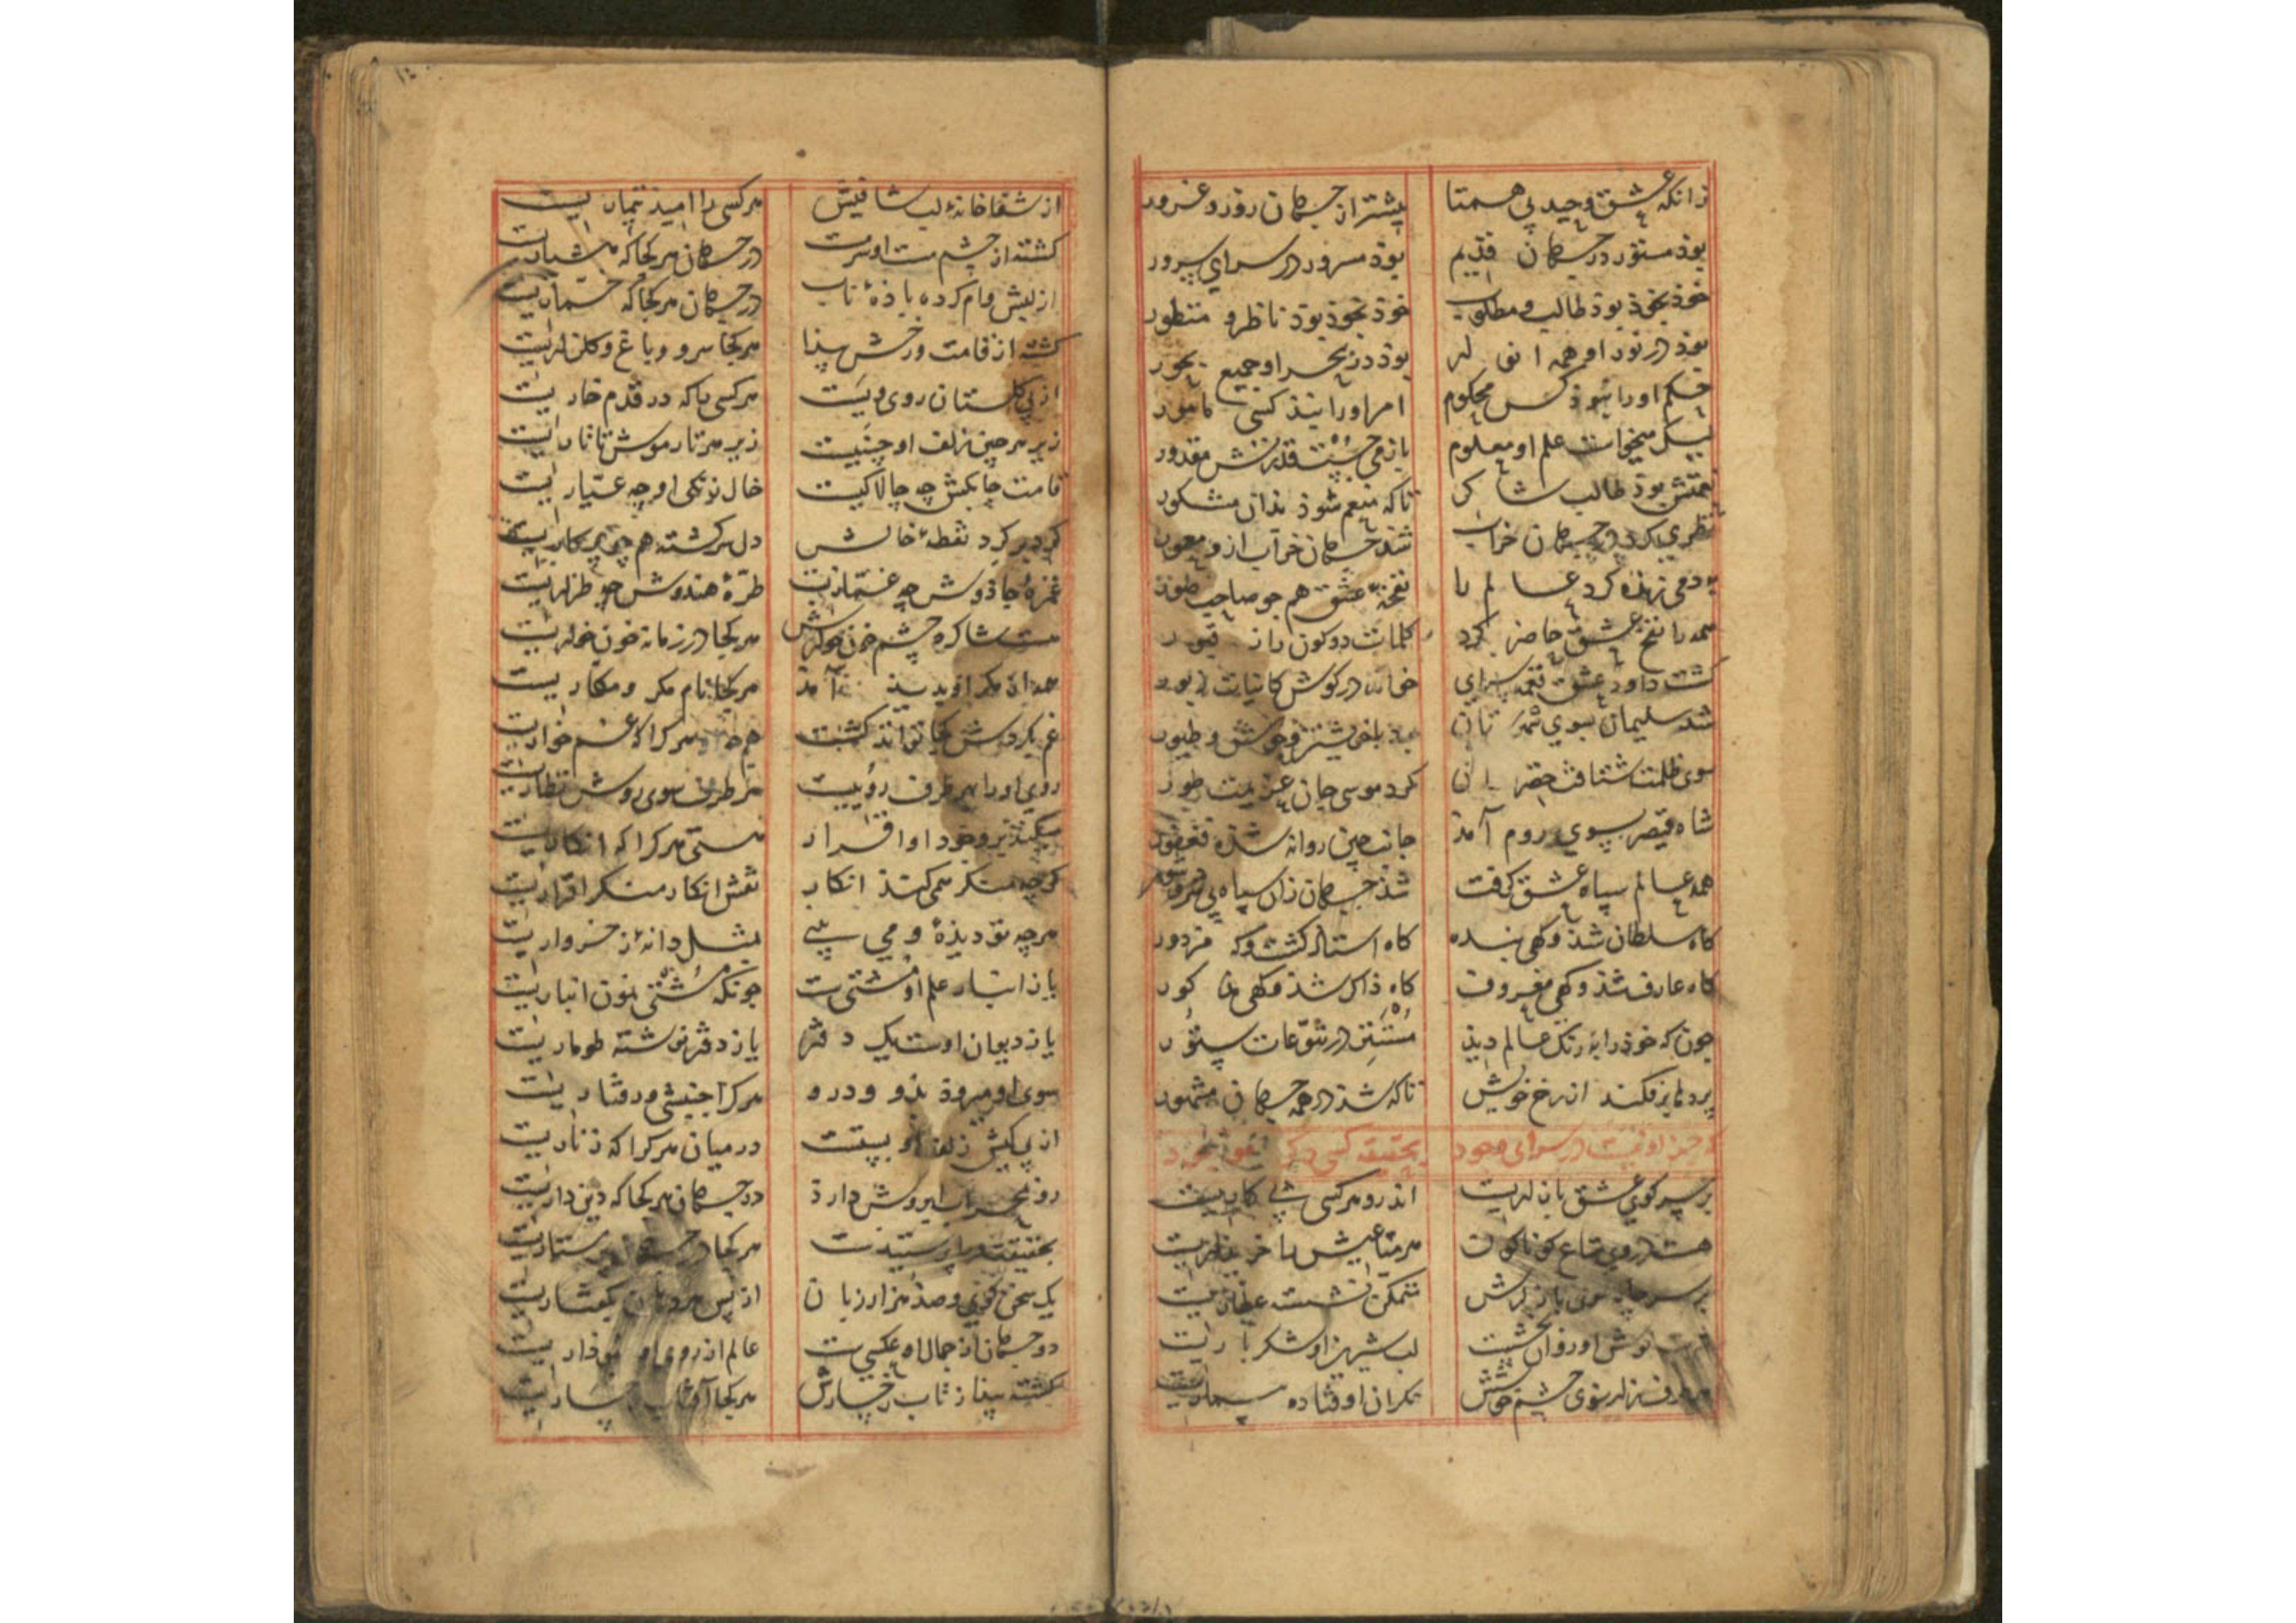 زانکه عشق وحید بی همتا
پیشتر از جهان روز و غرور
بوذ مستور در جهان قدیم
بوذ مسرور در سرای سرور
خوذ بخوذ بوذ طالب و مطلوب
خوذ بخوذ بوذ ناظر و منظور
بوذ در نور او همه انوار
بوذ در بحر او جمیع بحور
حکم او را نبوذ کس محکوم
امر او را نبذ کسی مامور
لیک میخواست علم او معلوم
باز می جست قدرتش مقدور
نعمتش بوذ طالب شاکر
تاکه منعم شوذ بذان مشکور
نظری کرد در جهان خراب
شذ جهان خراب ازو معمور
بدمی زنده کرد عالم را
نفخهٔ عشق همچو صاحب صور
همه را نفخ عشق حاضر کرد
کلمات دو کون را ز قبور
گشت داود عشق نغمه سرای
خواند در گوش کائنات زبور
شد سلیمان بسوی شهرستان
با خویشتن وحوش و طیور
سوی ظلمت شتافت خضر
کرد موسی جان عزیمت طور
شاه قیصر بسوی روم آمذ
جانب چین روانه شذ فغفور
همه عالم سپاه عشق گرفت
شذ جهان زان سپاه پر شر و شور
گاه سلطان شذ و گهی بنده
گاه استاذ گشت و گه مزدور
گاه عارف شذ و گهی معروف
گاه ذاکر شذ و گهی مذکور
چون که خوذ را برنگ عالم دیذ
مستتر در تنوعات ستور
پرده بر فکند از رخ خویش
تاکه شذ در همه جهان مشهور
که جز او نیست در سرای وجود
بحقیقت کسی دگر موجود
بر سر کوی عشق بازاریست
اندرو هر کسی پی کاریست
هست در وی متاع گوناگون
هر متاعیش را خریداریست
بر سر چار سوی بازارش
متمکن نشسته عطاریست
نوش او روان بخشست
لب شیرین او شکر باریست
هر طرف زار سوی چشم خوشش
نگران اوفتاده بیماریست
از شفا خانهٔ لب شافیش
هر کسی را امید تیماریست
گشته از چشم مست او سرمست
در جهان هر کجا که هشیاریست
از لبش وام کرده باذهٔ ناب
در جهان هر کجا که خمّاریست
گشته از قامت و رخش پیذا
هر کجا سرو و باغ و گلزاریست
از پی گلستان روی ویست
هر کسی را که در قدم خاریست
زیر هر چین زلف او چینیست
زیر هر تار موش تاتاریست
قامت چابکش چه چالاکیست
خال زنگی او چه عیّاریست
گرد بر گرد نقطهٔ خالش
دل سرگشته همچو پرگاریست
غمزهٔ جاذوش چه غمّازیست
طرّهٔ هندوش چه طرّاریست
مست شاگرد چشم خونخوارش
هر کجا در زمانه خون خواریست
همه از مکر او پدید آمذ
هر کجا نام مکر و مکاریست
غم بگردش کجا تواند گشت
هر که را که غمخواریست
روی او را بهر طرف روییست
هر طرف سوی روش نظاریست
میکند بر وجود او اقرار
هستی هر کرا که انکاریست
گرچه منکر همی کند انکار
نفس انکار منکر اقراریست
هرچه تو دیذهٔ و می بینی
بمثل دانهٔ ز خرواریست
باز انبار علم او مشتیست
چونکه مشتی نمون انباریست
باز دیوان اوست یک دفتر
باز دفتر نوشته طوماریست
سوی او میروذ بذو و درو
هر کرا جنبشی و رفتاریست
از پی کیش زلف او بستست
در میان هر کرا که زناریست
رو بمحراب ابروش دارذ
در جهان هر کجا که دین داریست
بحقیقت ورا پرستیدست
هر کجا در جهان پرستاریست
یک سخن گوی و صذ هزار زبان
از پس هر زبان گفتاریست
دو جهان از جمال او عکسیست
عالم از روی او نموذاریست
گشته پیذا ز تاب رخسارش
هر کجا آفتاب رخساریست